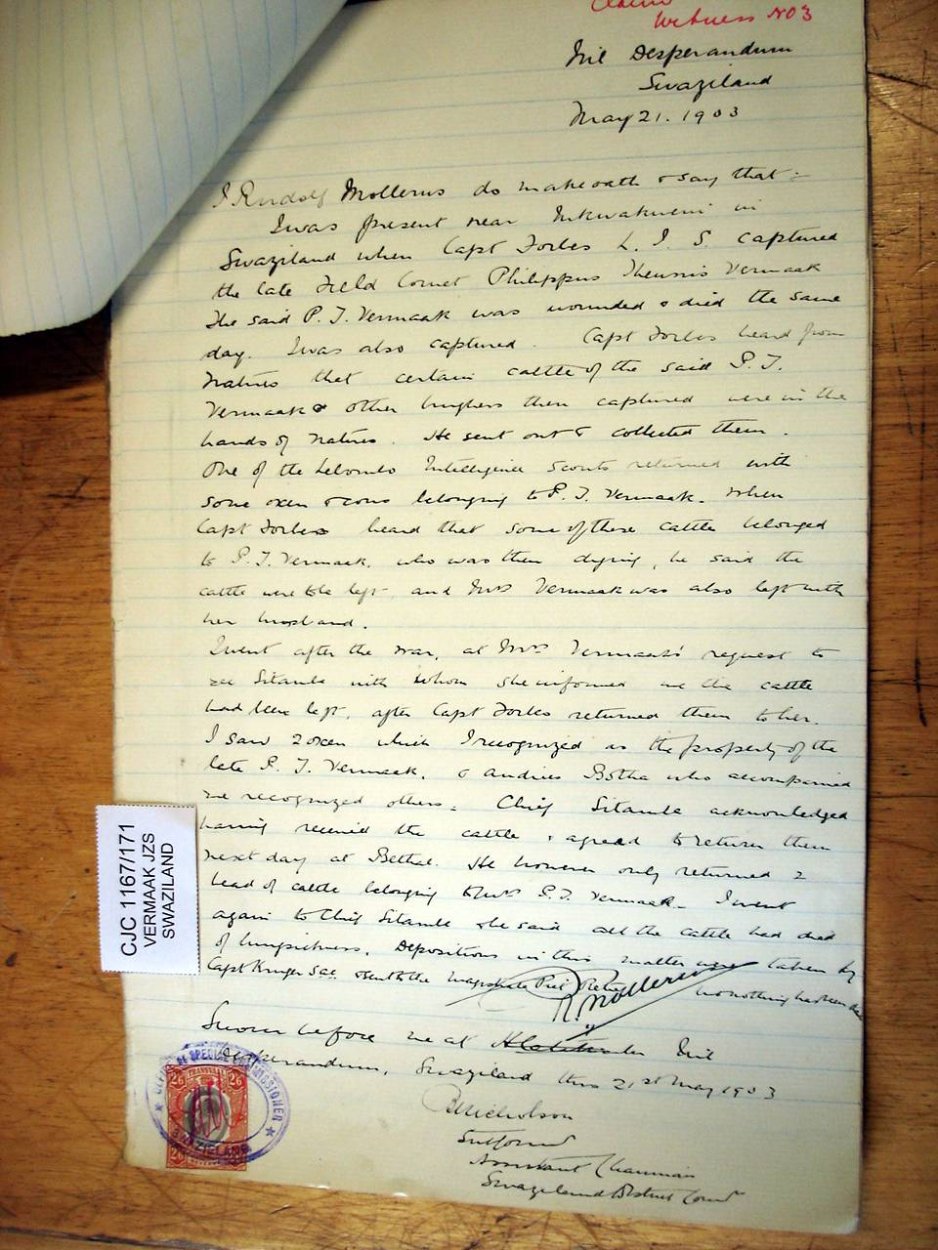 Claim
Witness No 3
Nil Desperandum
Swaziland
May 21. 1903
I Rudolf Mollerus do make oath & say that :-
I was present near in
Swaziland when Capt Forbes L. I. S. captured
the late Field Cornet Philippus Theunis Vermaak
The said P. T. Vermaak was wounded & died the same
day. I was also captured. Capt Forbes heard from
Natives that certain cattle of the said P. T.
Vermaak & other burghers then captured were in the
hands of Natives. He sent out & collected them.
One of the Lebombo Intelligence Scouts returned with
some oxen & cows belonging to P. T. Vermaak. When
Capt Forbes heard that some of these cattle belonged
to P. T. Vermaak, who was then dying, he said the
cattle were to be left and Mrs Vermaak was also left with
her husband.
I went after the war, at Mrs Vermaak's request to
see Sitambe with whom she informed me the cattle
had been left, after Capt Forbes returned them to her.
I saw 2 oxen which I recognized as the property of the
late P. T. Vermaak, & Andries Botha who accompanied
me recognized others. Chief Sitambe acknowledged
having received the cattle & agreed to return them
next day at Bethal. He however only returned 2
head of cattle belonging to Mrs P. T. Vermaak. I went
again to Chief Sitambe & he said all the cattle had died
of lungsickness. Depositions in this matter were taken by
Capt Kruger SAC & sent to the Magistrate Piet Retief but nothing has been
R. Mollerus
Sworn before me at Nil
Desperandum, Swaziland this 21st May 1903
BNicholson
Assistant Chairman
Swaziland District Court
CJC 1167/171
VERMAAK JZS
SWAZILAND
OFFICE OF SPECIAL COMMISSIONER
SWAZIELAND
TRANSVAAL
2/6 2/6
2/6